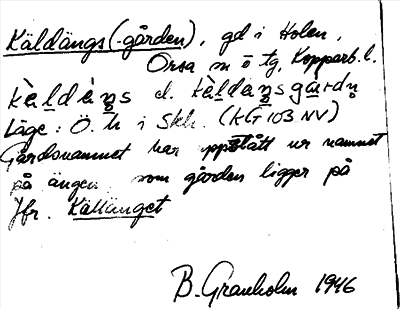 Käldängs(-gården), gd i Holen,
Orsa sn o tg, Kopparb. l.
kὲldὲŋs el. kὲldὲŋsgårdn̥
Läge: Ö. h i Skh. (KG 103 NV)
Gårdsnamnet har uppstått ur namnet
på ängen som gården ligger på
Jfr. Källänget
B. Granholm 1946